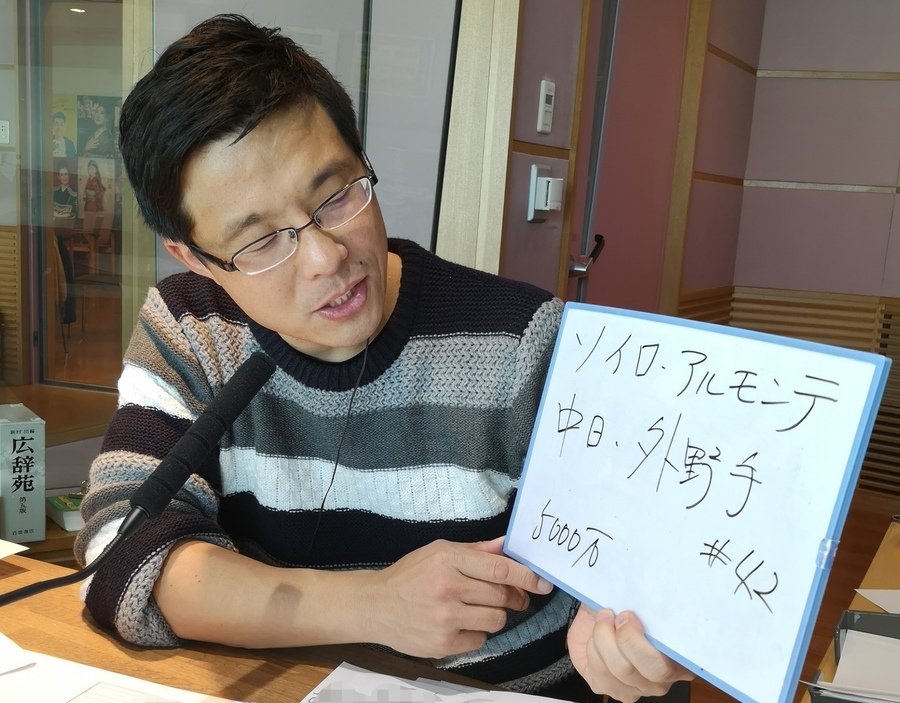 ソイロ・アルモンテ
中日、外野手
5000万
#42
新村 出編
広辞苑
第五版
岩波書店